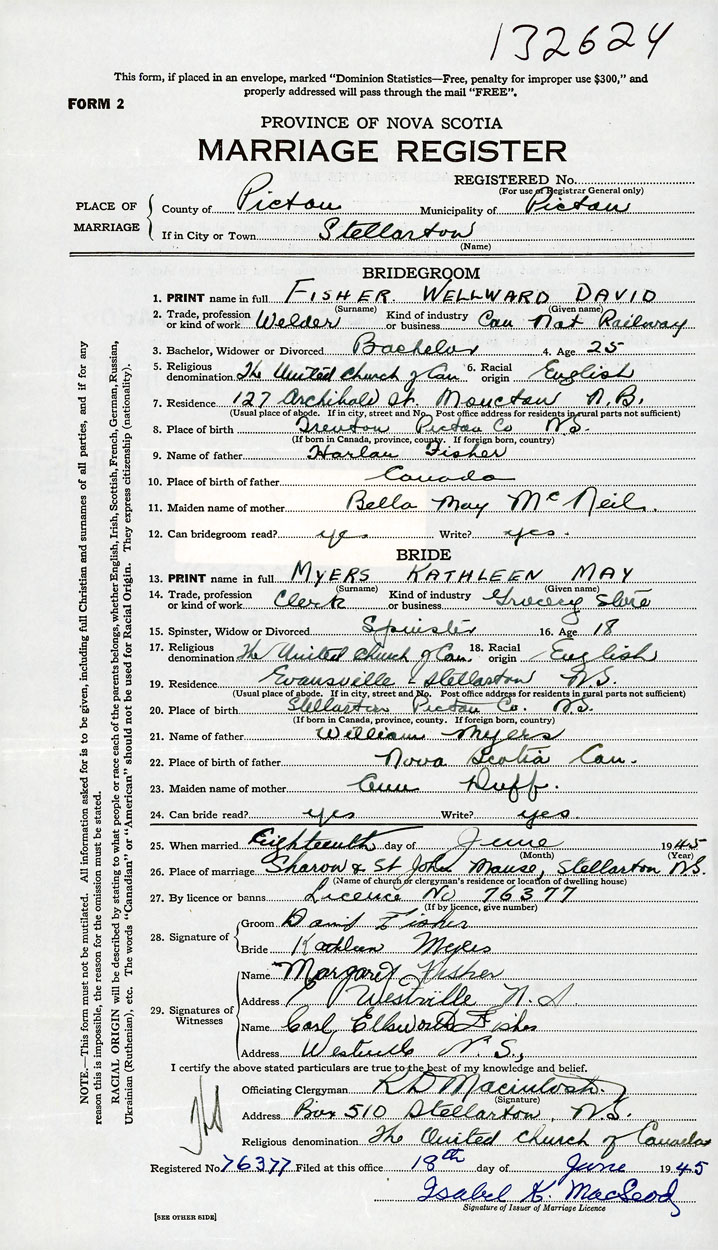 132624
This form, if placed in an envelope, marked "Dominion Statistics—Free, penalty for improper use $300," and
properly addressed will pass through the mail "FREE".
FORM 2
PROVINCE OF NOVA SCOTIA
MARRIAGE REGISTER
REGISTERED No.
(For use of Registrar General only)
PLACE OF MARRIAGE
County of Pictou Municipality of Pictou
If in City or Town Stellarton
(Name)
BRIDEGROOM
1. PRINT name in full FISHER WELLWARD DAVID
(Surname) (Given name)
2. Trade, profession or kind of work Welder Kind of industry or business Can Nat Railway
3. Bachelor, Widower or Divorced Bachelor 4. Age 25
5. Religious denomination The United Church of Can 6. Racial origin English
7. Residence 127 Archibald St. Moncton N.B.
(Usual place of abode. If in city, street and No. Post office address for residents in rural parts not sufficient)
8. Place of birth Trenton Pictou Co N.S.
(If born in Canada, province, county. If foreign born, country)
9. Name of father Harlan Fisher
10. Place of birth of father Canada
11. Maiden name of mother Bella May McNeil.
12. Can bridegroom read? yes Write? yes.
BRIDE
13. PRINT name in full MYERS KATHLEEN MAY
(Surname) (Given name)
14. Trade, profession or kind of work Clerk Kind of industry or business Grocery Store
15. Spinster, Widow or Divorced Spinster 16. Age 18
17. Religious denomination The United Church of Can. 18. Racial origin English
19. Residence Evansville - Stellarton N.S.
(Usual place of abode. If in city, street and No. Post office address for residents in rural parts not sufficient)
20. Place of birth Stellarton Pictou Co. N.S.
(If born in Canada, province, county. If foreign born, country)
21. Name of father William Myers
22. Place of birth of father Nova Scotia Can.
23. Maiden name of mother Ann Duff.
24. Can bride read? yes Write? yes.
25. When married Eighteenth day of June 1945
(Month) (Year)
26. Place of marriage Sharon & St John Manse, Stellarton N.S.
(Name of church or clergyman's residence or location of dwelling house)
27. By licence or banns Licence No 76377
(If by licence, give number)
28. Signature of
Groom David Fisher
Bride Kathleen Myers
29. Signatures of Witnesses
Name Margaret Fisher
Address Westville N.S
Name Carl Ellsworth Fisher
Address Westville N.S.,
I certify the above stated particulars are true to the best of my knowledge and belief.
Officiating Clergyman R D Macintosh.
(Signature)
Address Box 510 Stellarton, N.S.
Religious denomination The United Church of Canada
Registered No 76377 Filed at this office 18th day of June 1945
Isabel K. MacLeod
Signature of Issuer of Marriage Licence
[SEE OTHER SIDE]
NOTE.—This form must not be mutilated. All information asked for is to be given, including full Christian and surnames of all parties, and if for any
reason this is impossible, the reason for the omission must be stated.
RACIAL ORIGIN will be described by stating to what people or race each of the parents belongs, whether English, Irish, Scottish, French, German, Russian,
Ukrainian (Ruthenian), etc. The words "Canadian" or "American" should not be used for Racial Origin. They express citizenship (nationality).